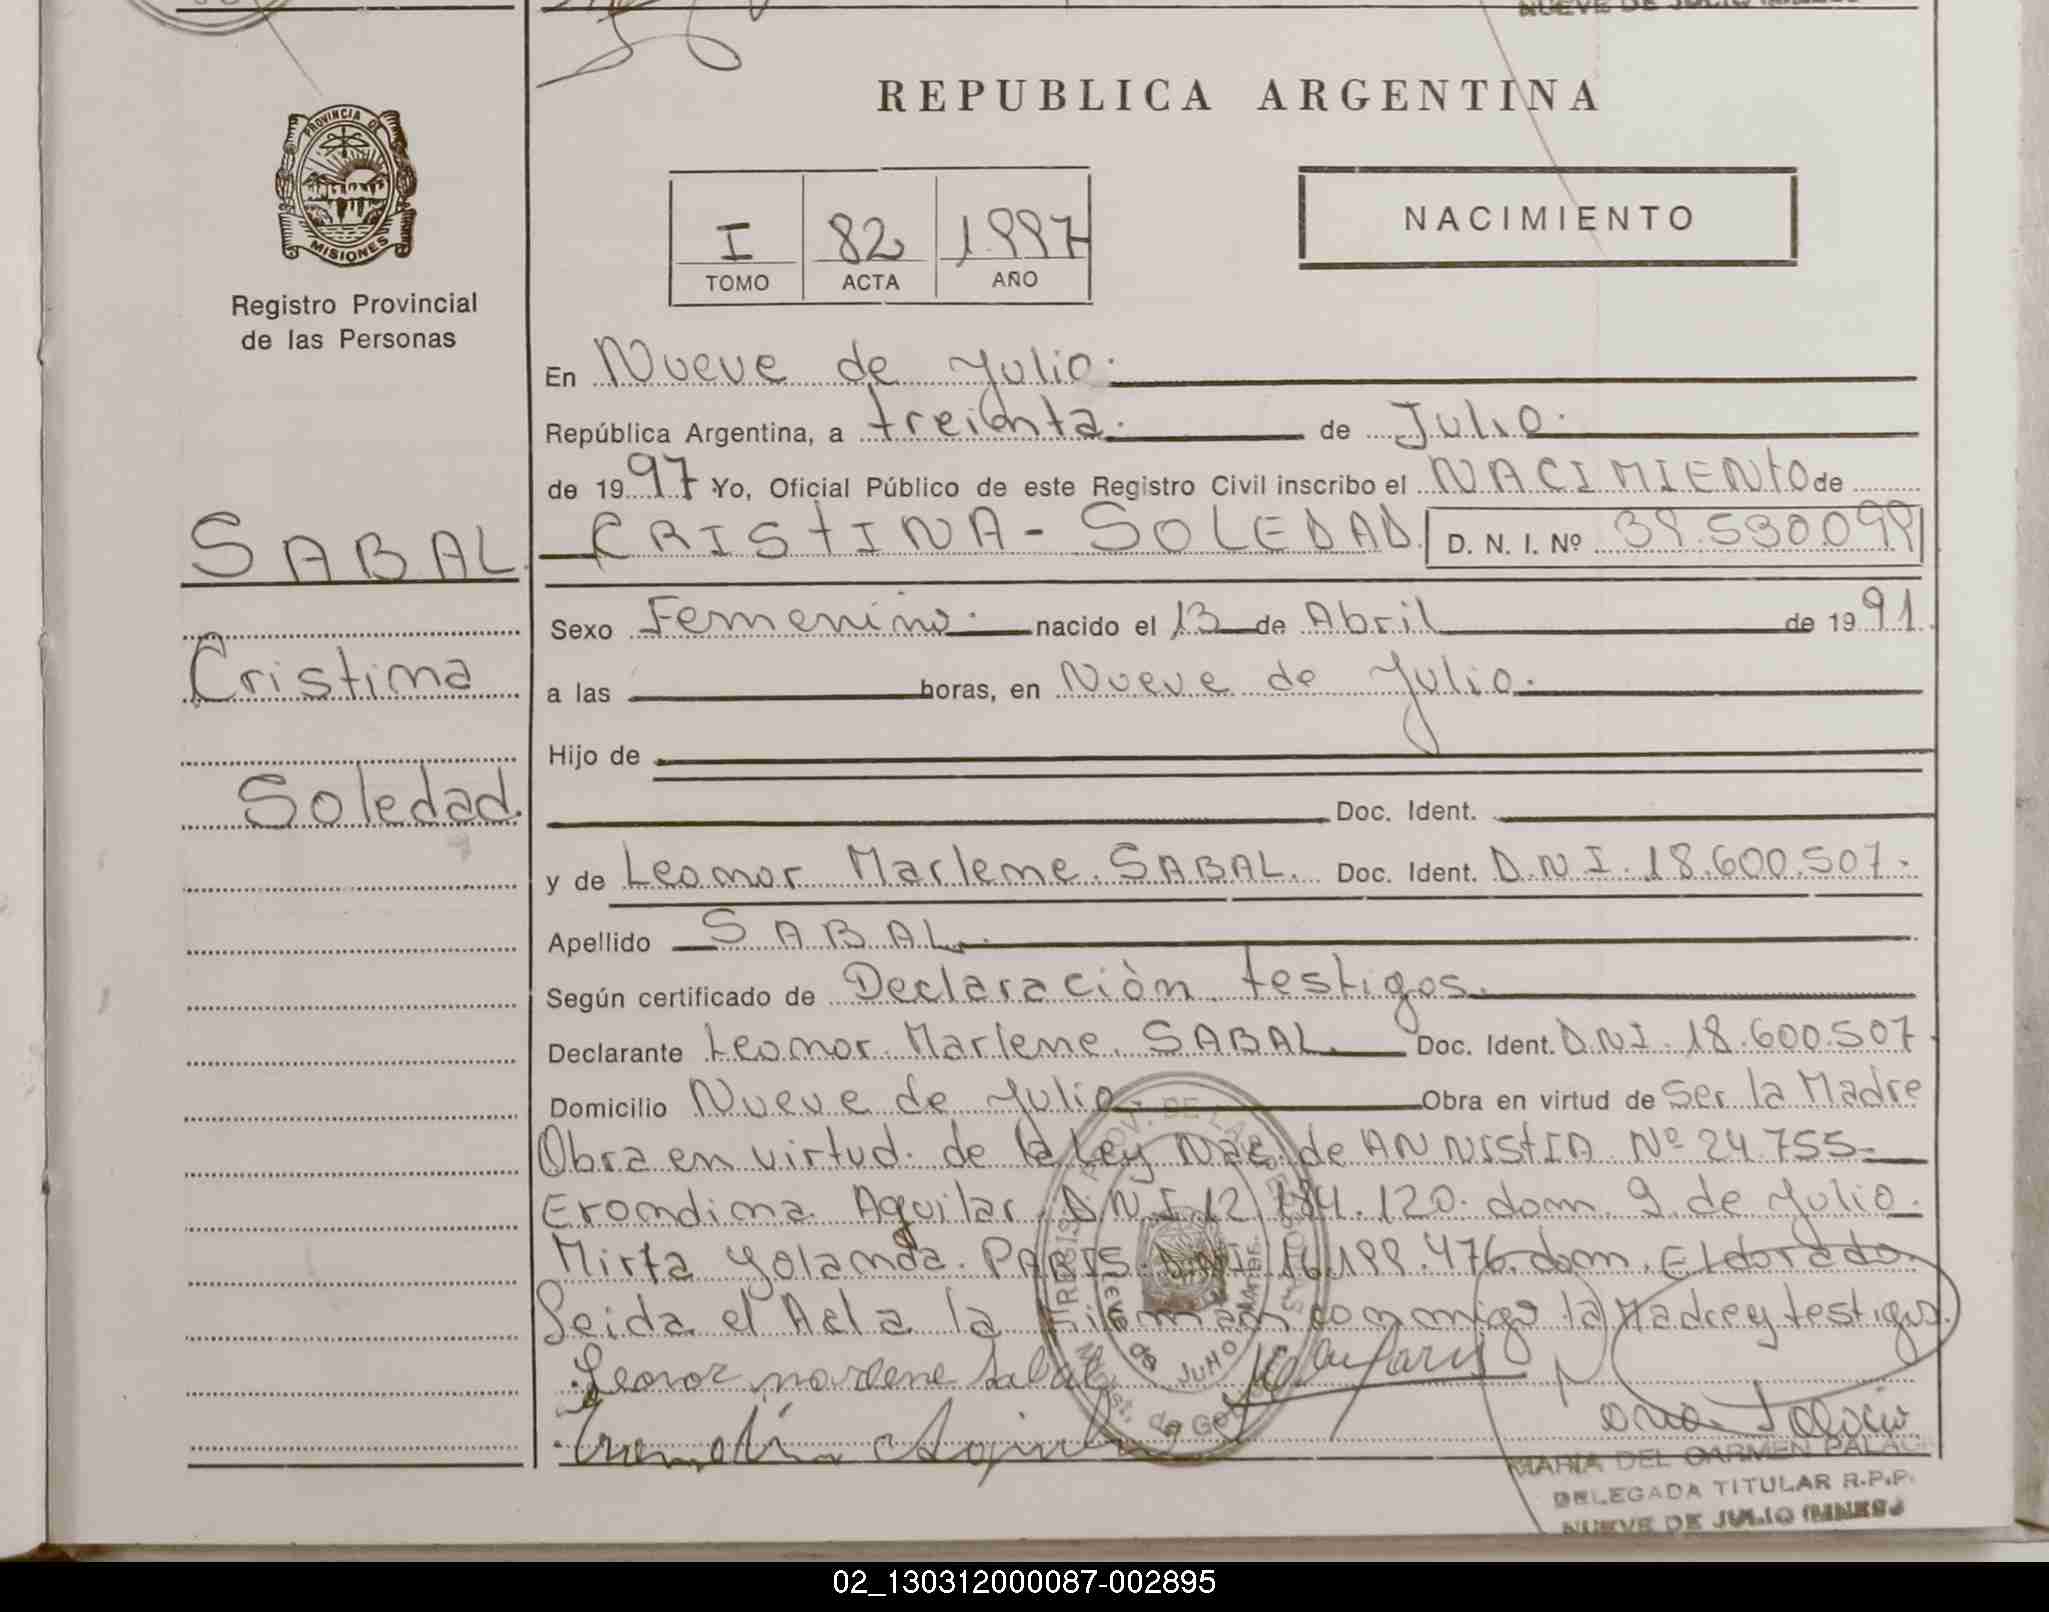 NUEVE DE JULIO
REPUBLICA ARGENTINA
PROVINCIA DE
MISIONES
Registro Provincial
de las Personas
I 82 1.997
TOMO ACTA AÑO
NACIMIENTO
En Nueve de Julio.
República Argentina, a treinta. de Julio.
de 1997 Yo, Oficial Público de este Registro Civil inscribo el NACIMIENTO de
SABAL. CRISTINA - SOLEDAD. D. N. I. Nº
Sexo Femenino. nacido el 13 de Abril de 1991.
Cristina
a las horas, en Nueve de Julio.
Hijo de
Soledad.
Doc. Ident.
y de Leonor Marlene. SABAL. Doc. Ident. D.N.I. 18.600.507.
Apellido SABAL.
Según certificado de Declaraciòn testigos.
Declarante Leonor Marlene. SABAL. Doc. Ident. D.N.I. 18.600.507
Domicilio Nueve de Julio. Obra en virtud de Ser la Madre
Obra en virtud. de la Ley Nac. de ANNISTIA Nº 24755
Erondina Aguilar D.N.I. 12 184.120. dom. 9 de Julio.
Mirta Yolanda. PARIS. DNI 16.199.476. dom. Eldorado.
Leida el Acta la Firman conmigo la Madre y testigos.
Leonor marlene Sabal
MARIA DEL CARMEN PALAC
DELEGADA TITULAR R.P.P.
NUEVE DE JULIO (MNES)
02_130312000087-002895